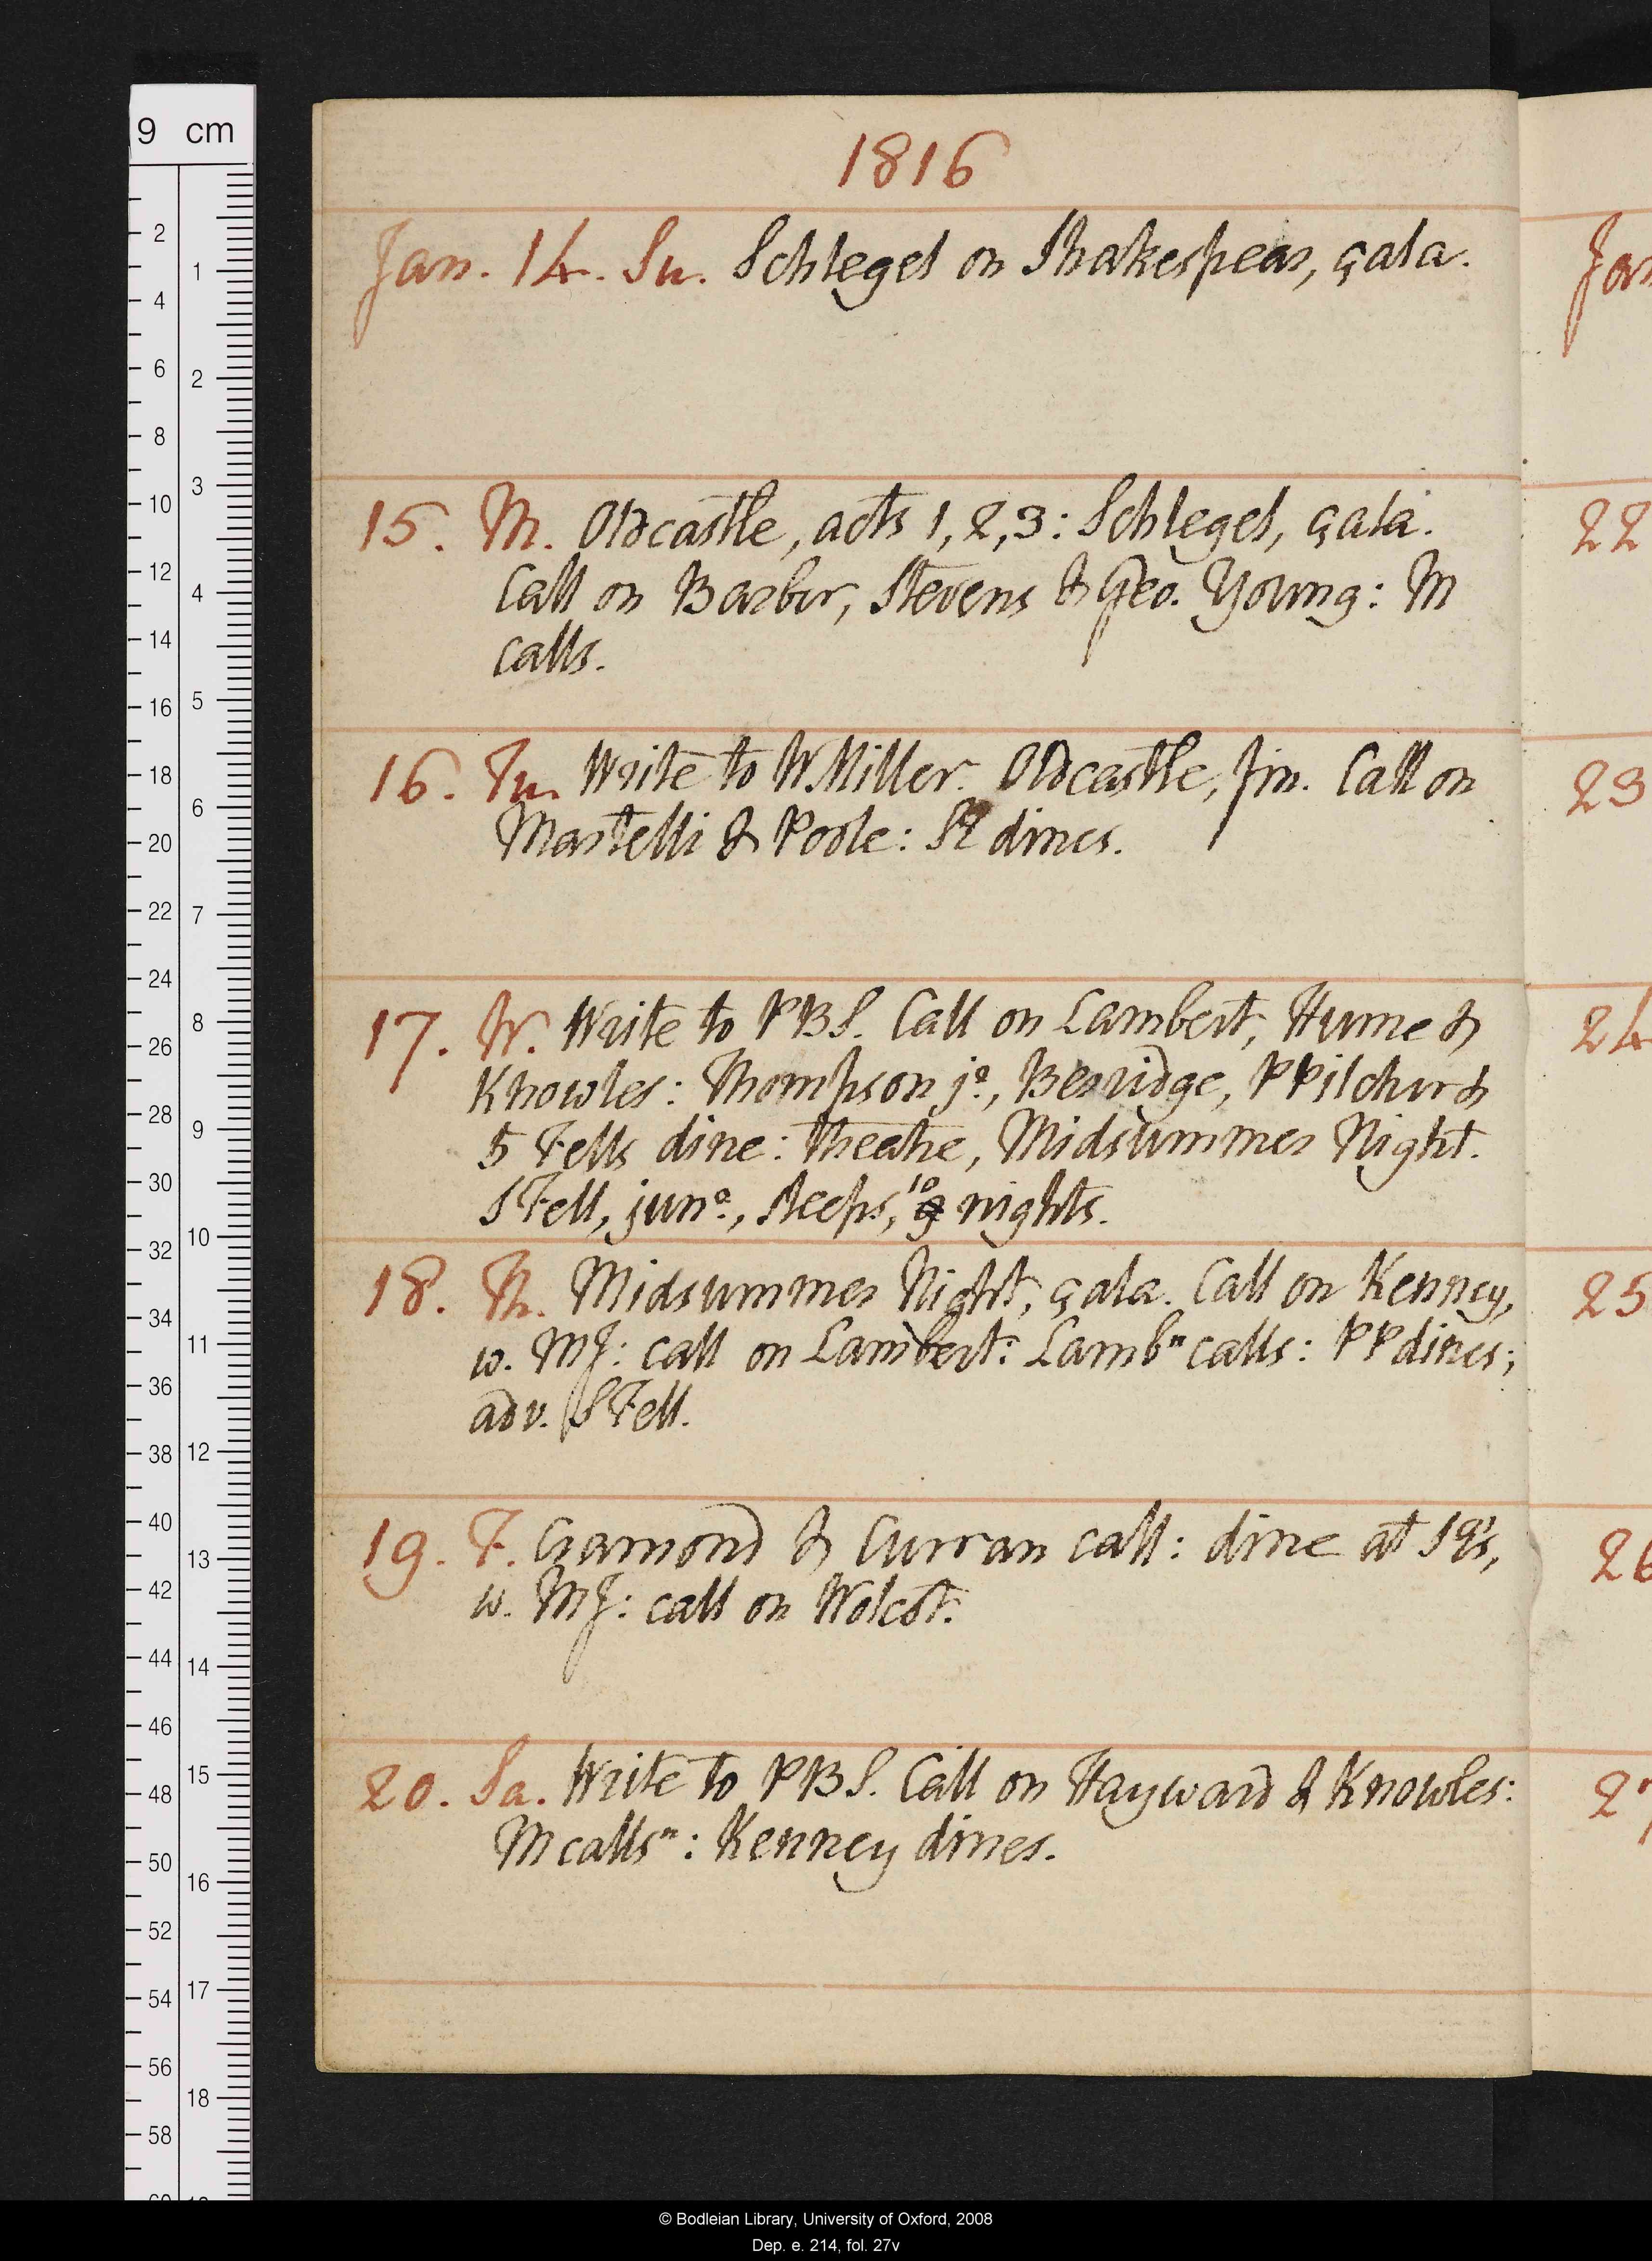 1816
Jan. 14. Su. Schlegel on Shakespear, çala.
15. M. Oldcastle, acts 1, 2, 3: Schlegel, çala.
Call on Barber, Stevens & Geo. Young: M
calls.
16. Tu. Write to W Miller. Oldcastle, fin. Call on
Martelli & Poole: dines.
17. W. Write to PBS. Call on Lambert, Hume &
Knowles: Thompson jº, Beridge, P Pilcher &
5 Fells dine: theatre, Midsummer Night.
S Fell, junº, sleeps, 10 nights.
18. Th. Midsummer Night, çala. Call on Kenney,
w. MJ: call on Lambert: Lambⁿ calls: PP dines;
adv. S Fell.
19. F. Gamond & Curran call: dine at
w. MJ: call on Wolcot.
20. Sa. Write to PBS. Call on Hayward & Knowles:
M callsⁿ: Kenney dines.
Jan
22
23
24
25
26
27
9 cm
2
4
6
8
10
12
14
16
18
20
22
24
26
28
30
32
34
36
38
40
42
44
46
48
50
52
54
56
58
1
2
3
4
5
6
7
8
9
10
11
12
13
14
15
16
17
18
© Bodleian Library, University of Oxford, 2008
Dep. e. 214, fol. 27v